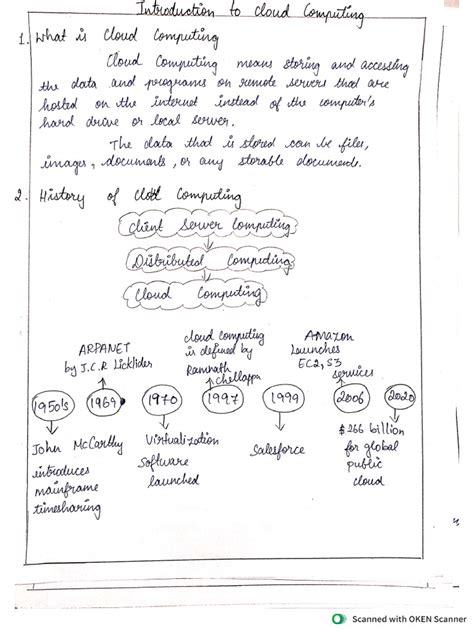 Introduction to Cloud Computing
1. What is Cloud Computing
Cloud Computing means storing and accessing
the data and programs on remote servers that are
hosted on the internet instead of the computer's
hard drive or local server.
The data that is stored can be files,
images, documents, or any storable document.
2. History of Cloud Computing
Client Server Computing
Distributed Computing
Cloud Computing
ARPANET
by J.C.R Licklider
Cloud computing
is defined by
Ramnath
Chellappa
Amazon
Launches
EC2, S3
services
1950's 1969 1970 1997 1999 2006 2020
John McCarthy
introduces
mainframe
timesharing
Virtualization
Software
launched
Salesforce
$266 billion
for global
public
cloud
Scanned with OKEN Scanner